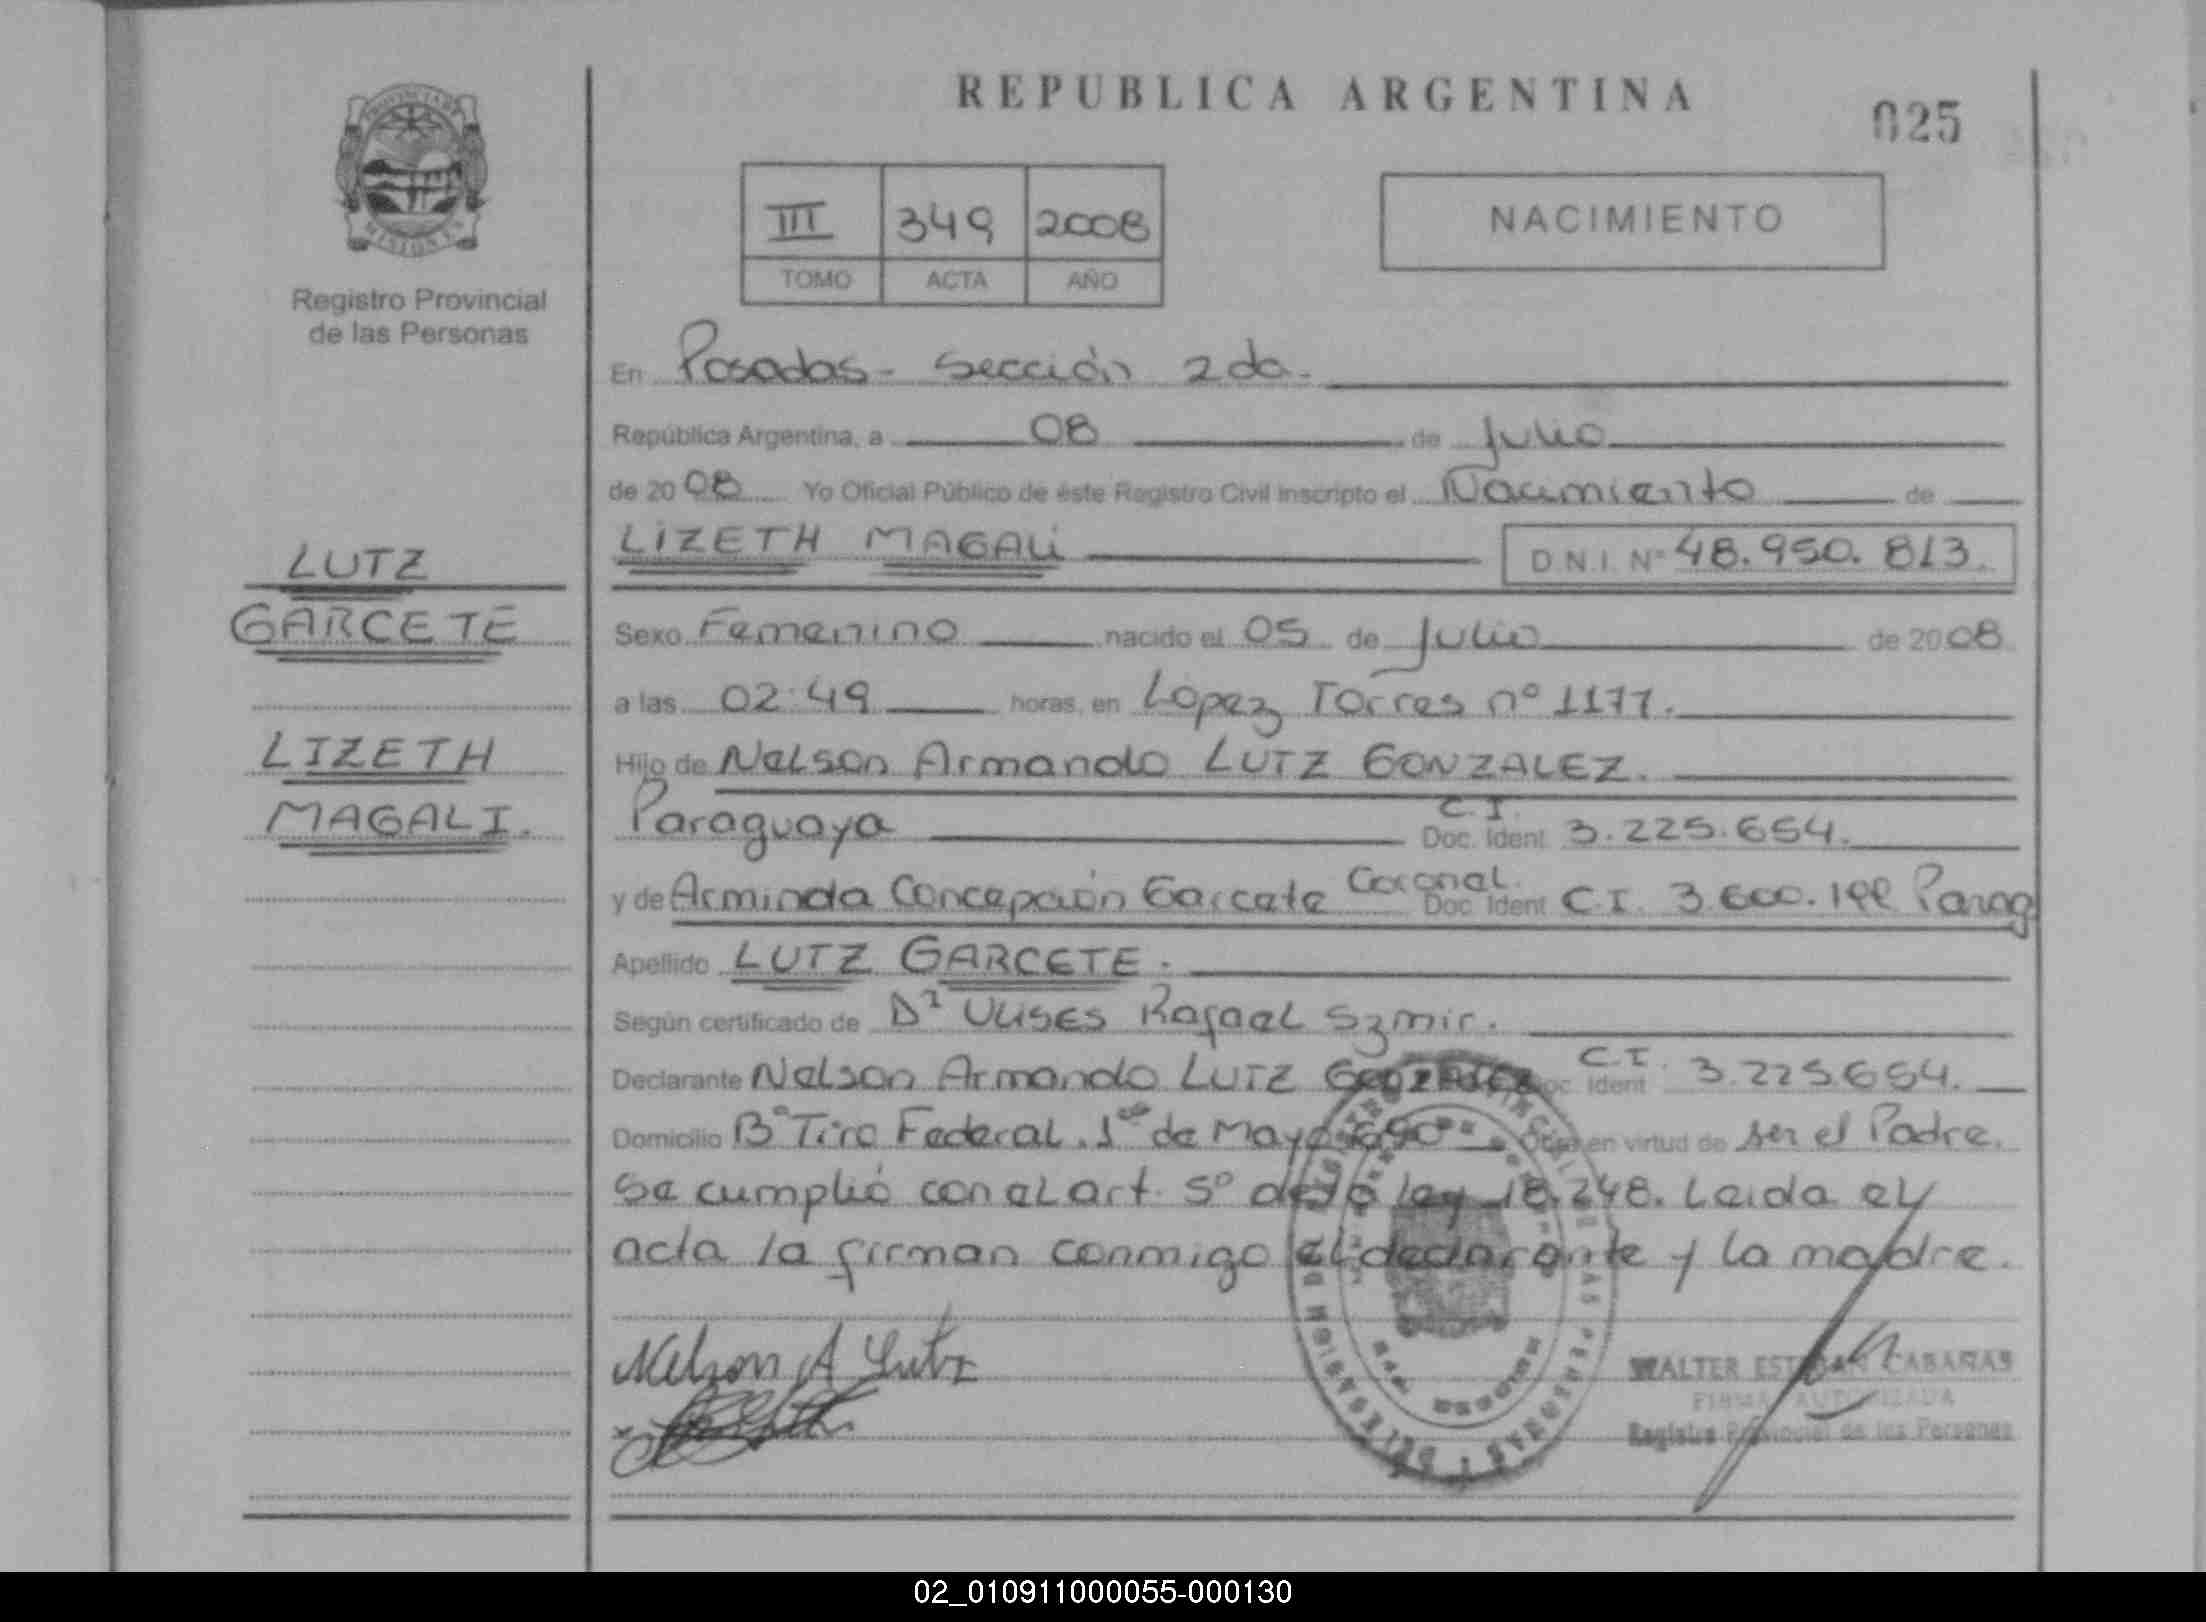 REPUBLICA ARGENTINA
025
PROVINCIA DE
MISIONES
Registro Provincial
de las Personas
III 349 2008
TOMO ACTA AÑO
NACIMIENTO
En Posadas - Sección 2da.
República Argentina, a 08 de Julio
de 2008 Yo Oficial Público de éste Registro Civil inscripto el Nacimiento de
LIZETH MAGALI D.N.I. Nº 48.950.813.
LUTZ
GARCETE
LIZETH
MAGALI.
Sexo Femenino nacido el 05 de Julio de 2008
a las 02:49 horas, en López Torres nº 1177.
Hijo de Nelson Armando LUTZ GONZALEZ.
Paraguaya C.I. Doc. Ident 3.225.654.
y de Arminda Concepción Garcete Coronel. Doc. Ident C.I. 3.600.199 Parag
Apellido LUTZ GARCETE.
Según certificado de Dr Ulises Rafael Szmir.
Declarante Nelson Armando LUTZ GONZALEZ Doc. Ident C.I. 3.225.654.
Domicilio Bº Tiro Federal. 1ro de Mayo en virtud de ser el Padre.
Se cumplió con el art. 5º de la ley 18.248. Leida el
acta la firman conmigo el declarante y la madre.
Nelson A Lutz
WALTER ESTEBAN CABAÑAS
FIRMA AUTORIZADA
Registro Provincial de las Personas
02_010911000055-000130